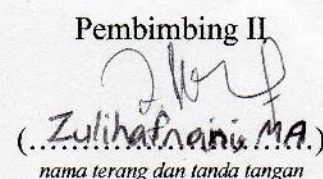 Pembimbing II
(Zulihafnani, MA.)
nama terang dan tanda tangan